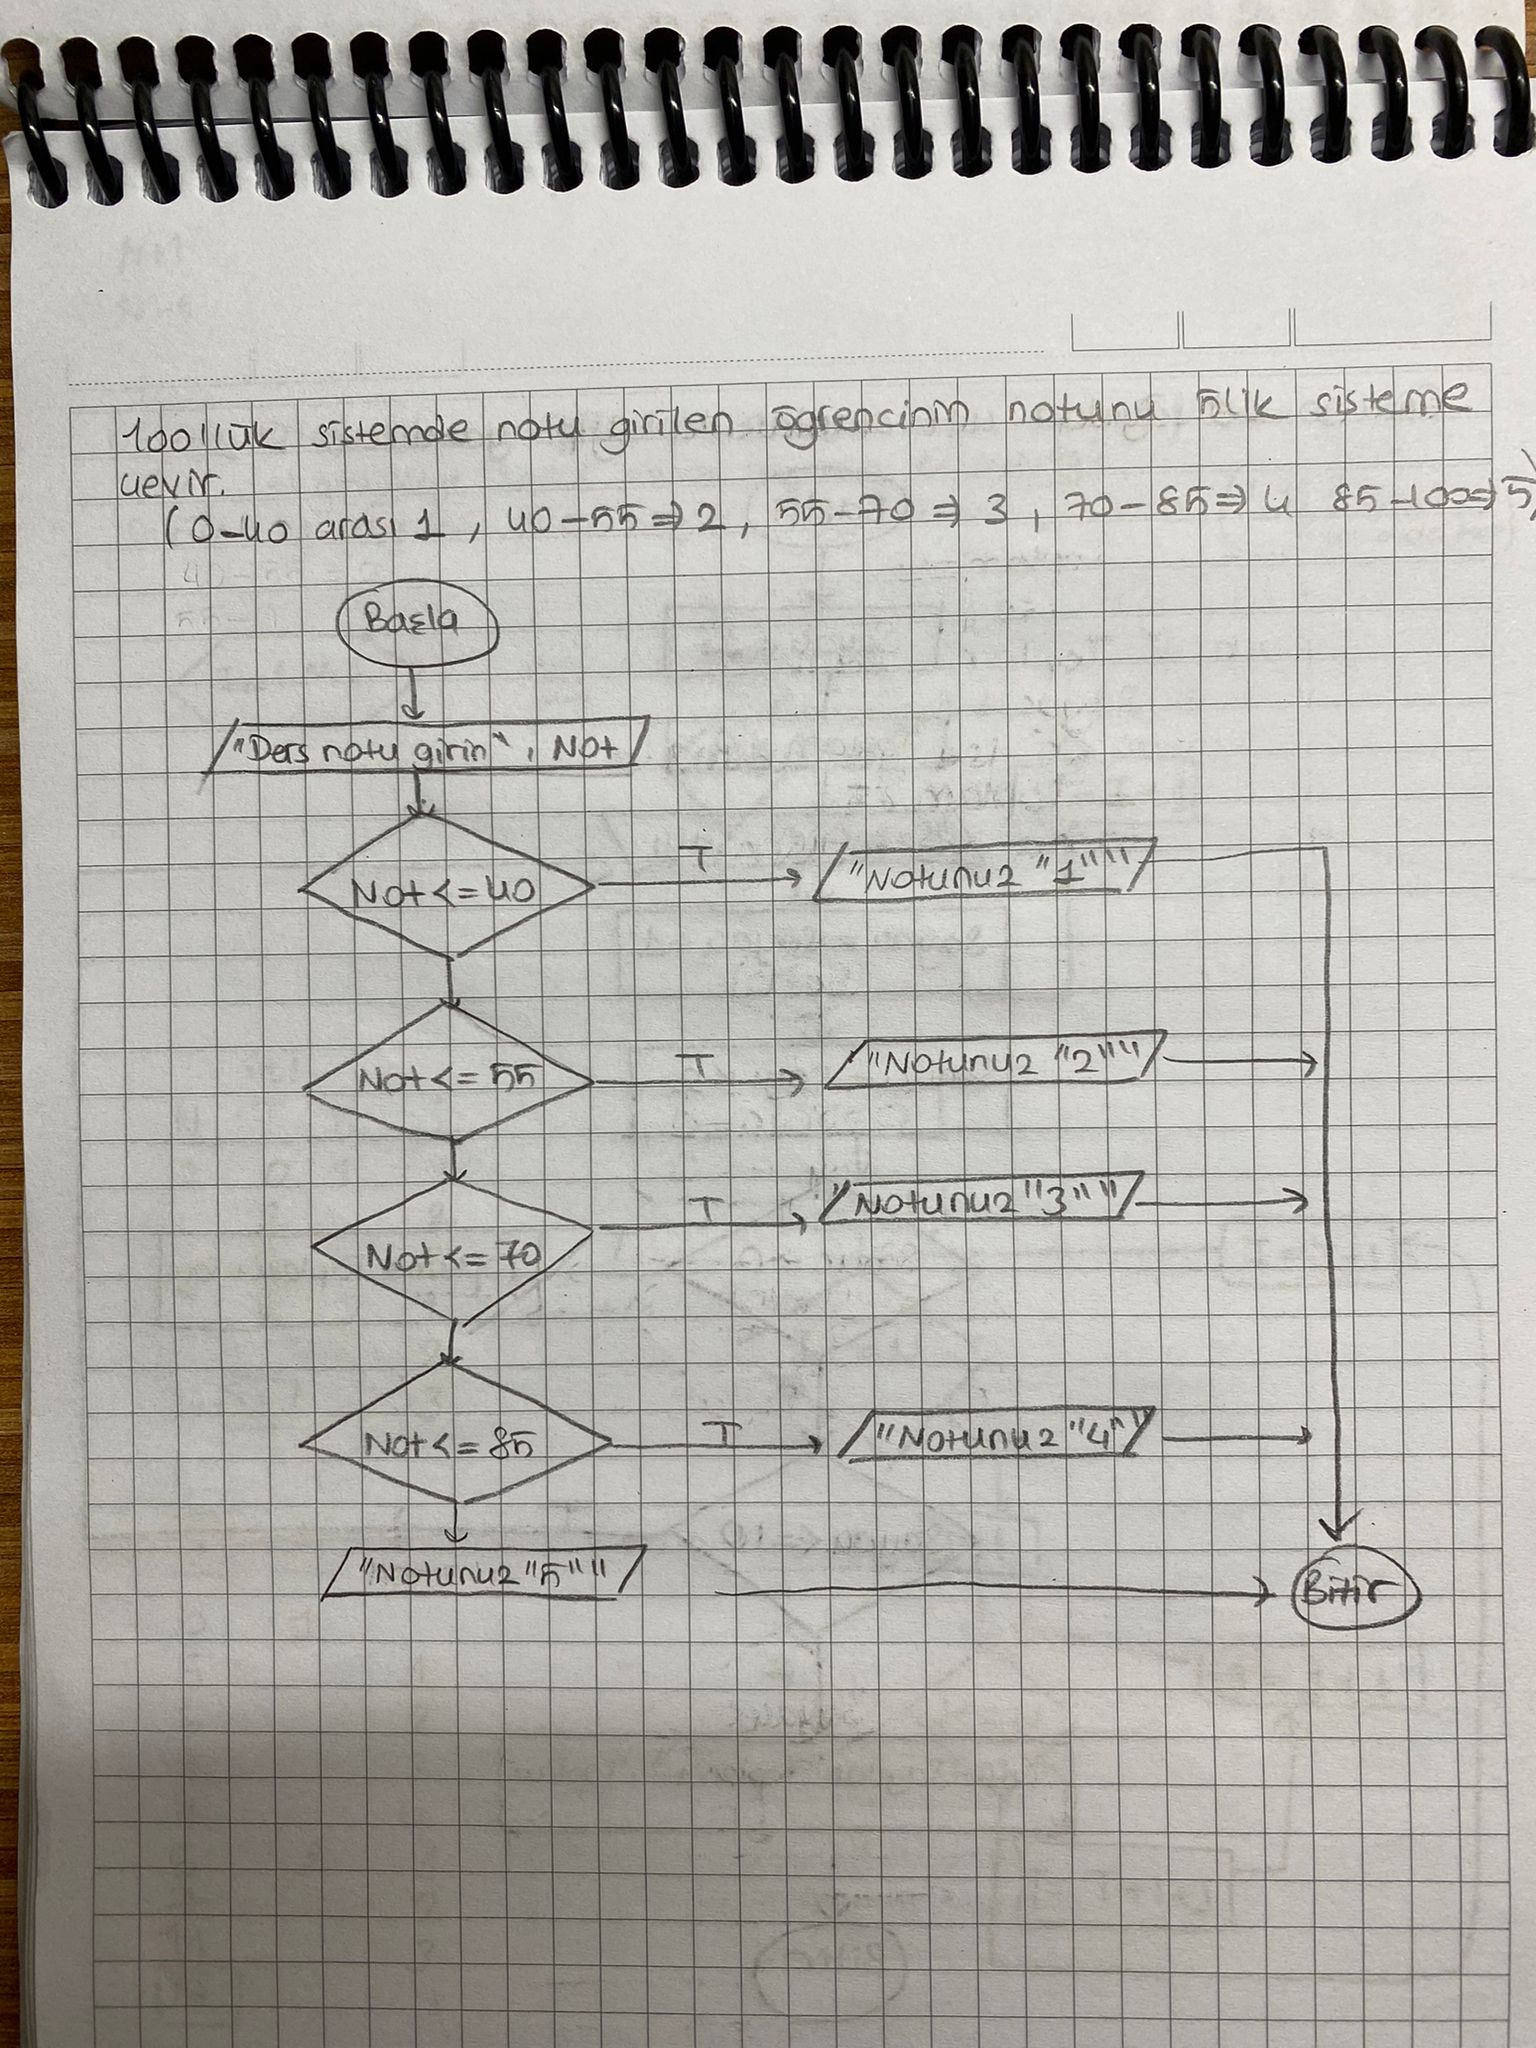 100'lük sistemde notu girilen öğrencinin notunu 5lik sisteme
çevir.
(0-40 arası 1, 40-55⇒2, 55-70⇒3, 70-85⇒4 85-100⇒5)
Başla
"Ders notu girin", Not
Not<=40
T
"Notunuz "1""
Not<=55
T
"Notunuz "2""
Not<=70
T
"Notunuz "3""
Not<=85
T
"Notunuz "4"
"Notunuz "5""
Bitir